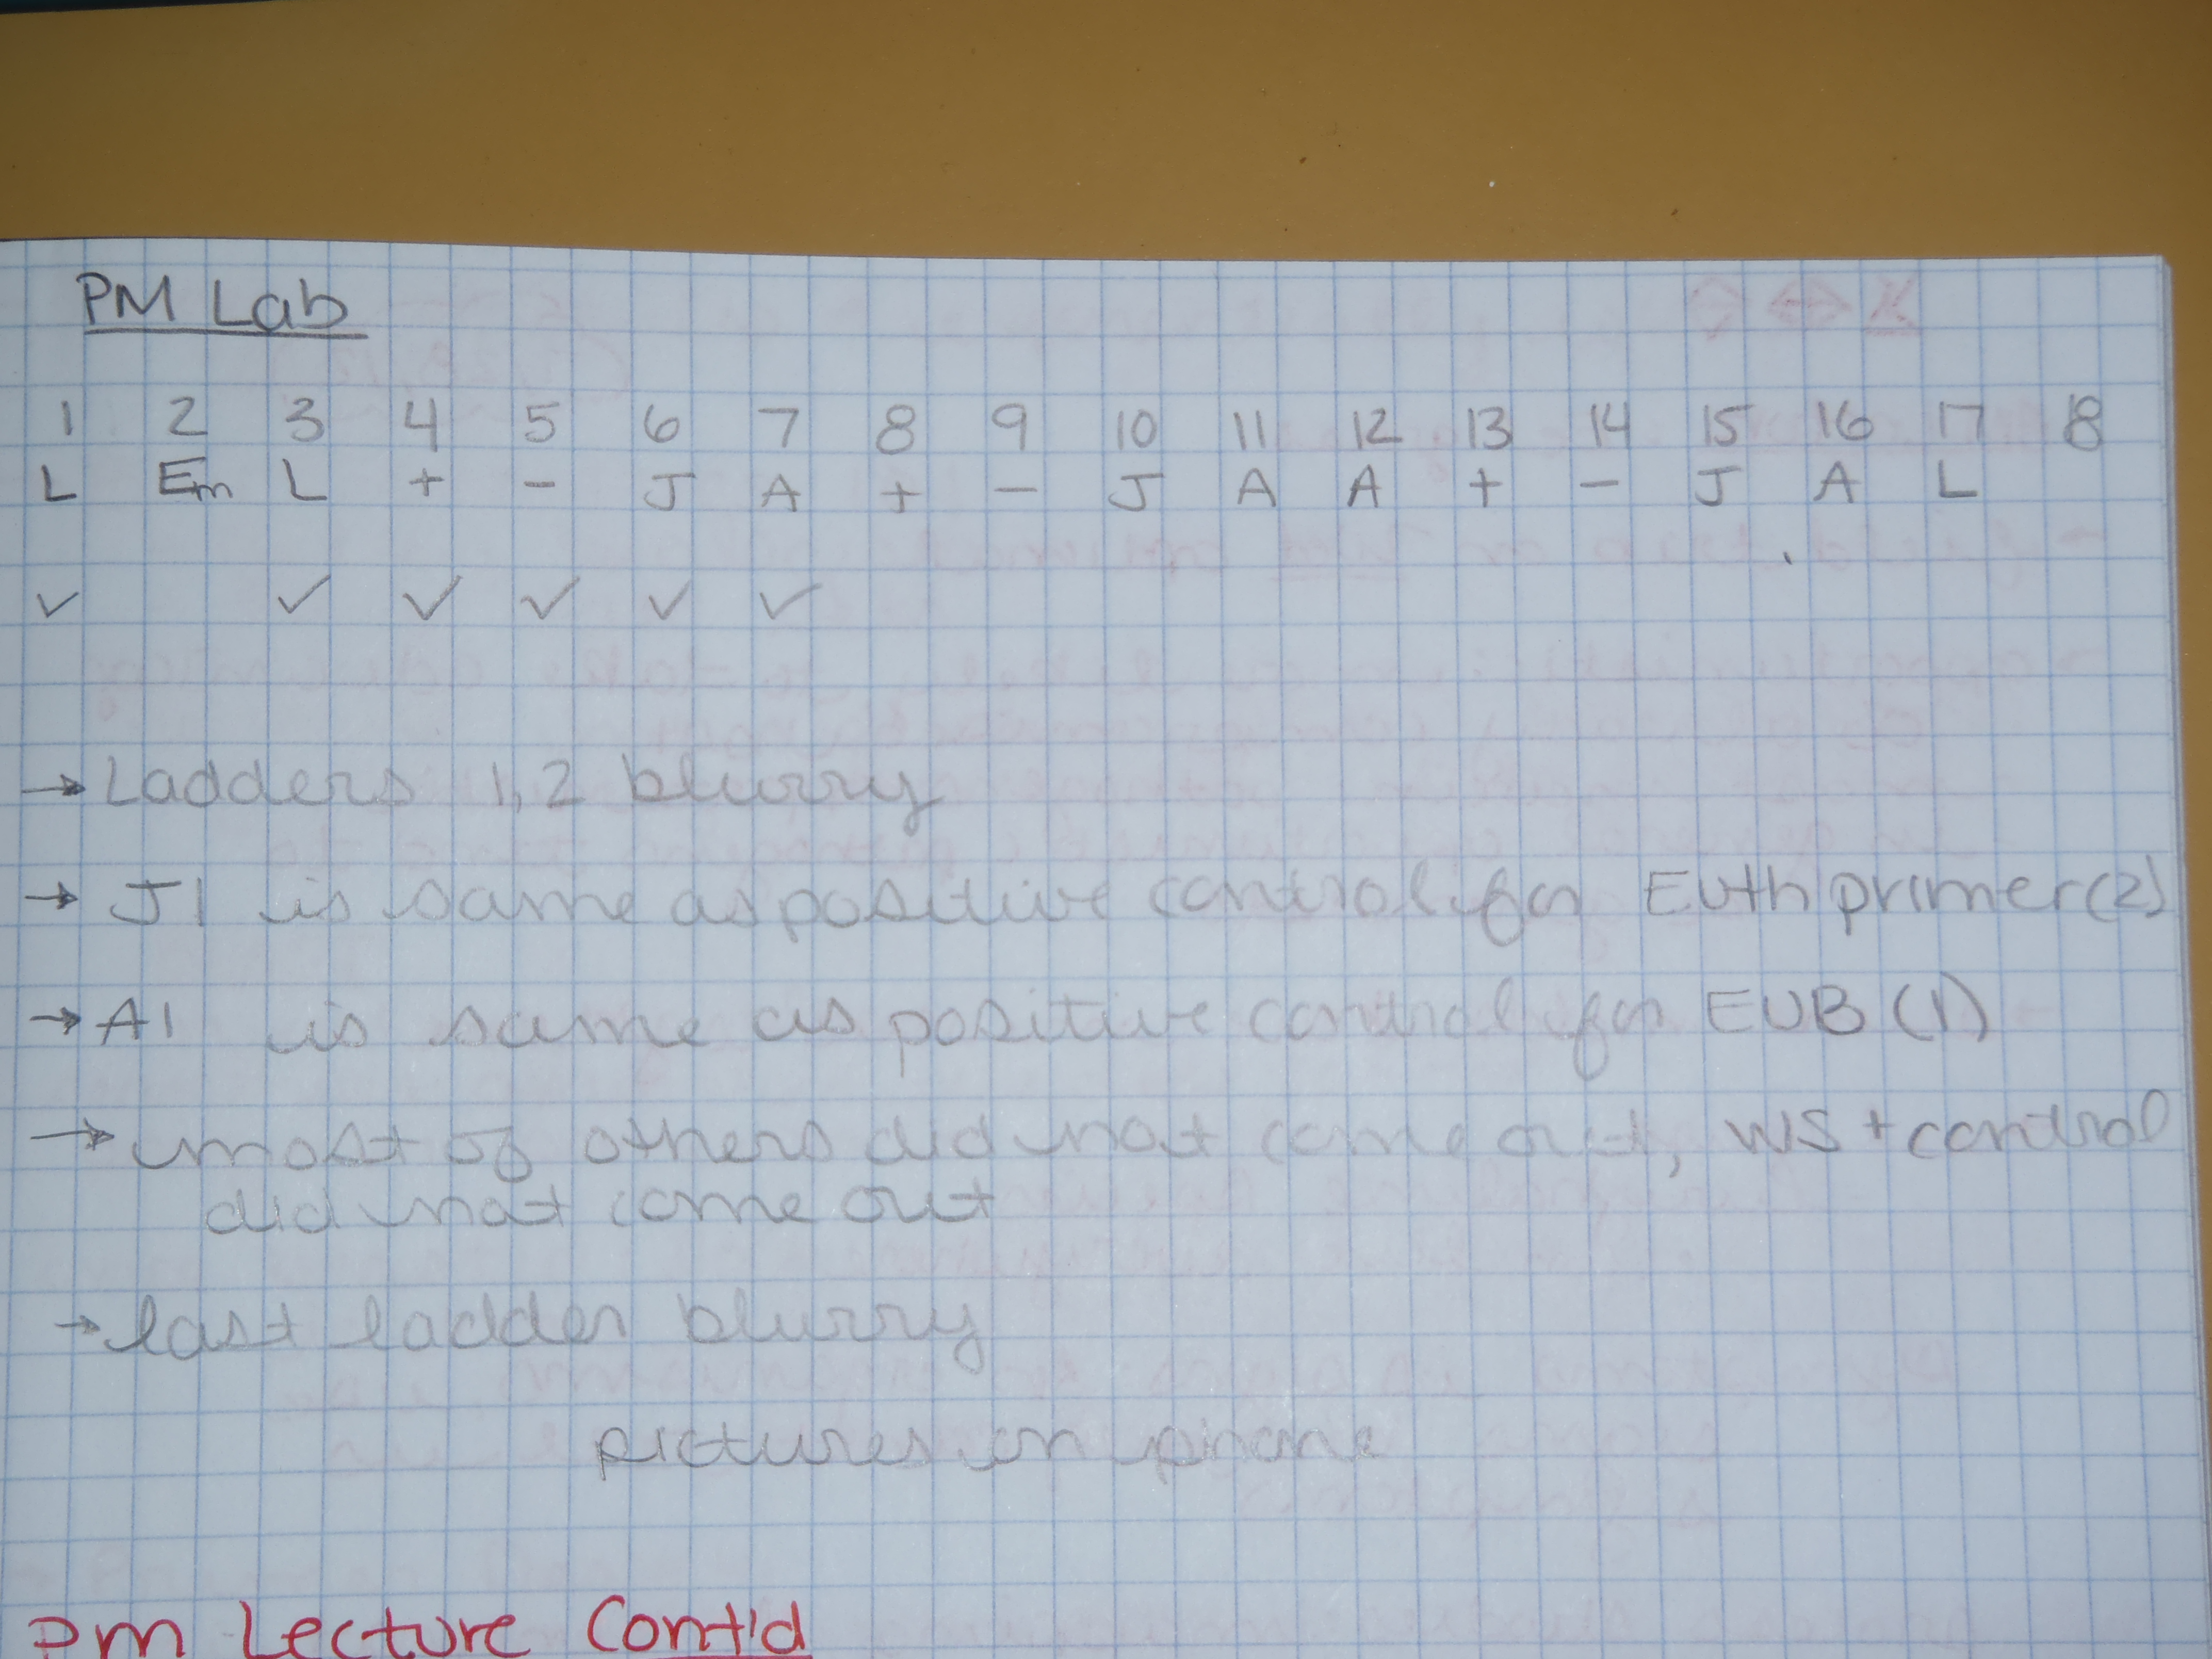 PM Lab
1 2 3 4 5 6 7 8 9 10 11 12 13 14 15 16 17 18
L Em L + - J A + - J A A + - J A L
✓ ✓ ✓ ✓ ✓ ✓
→ Ladders 1,2 blurry
→ J1 is same as positive control for EUth primer(2)
→ A1 is same as positive control for EUB (1)
→ most of others did not come out, WS + control
did not come out
→ last ladder blurry
pictures on phone
PM Lecture Cont'd